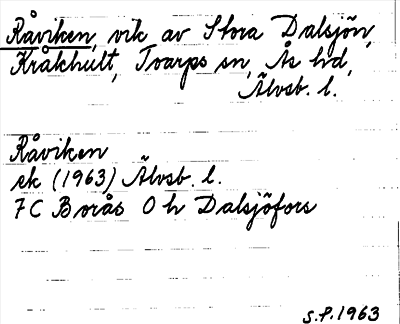 Råviken, vik av Stora Dalsjön,
Kråkhult, Toarps sn, Ås hd,
Älvsb. l.
Råviken
ek (1963) Älvsb. l.
7C Borås 0h Dalsjöfors
S.P. 1963